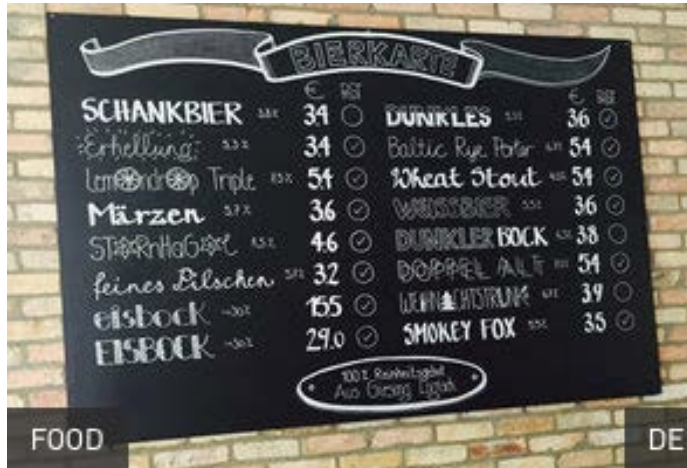 BIERKARTE
€
SCHANKBIER 34
Erhellung 5,3% 34
Lemondrop Triple 54
Märzen 5,7% 36
46
feines Pilschen 32
eisbock ~30% 155
EISBOCK ~30% 29.0
€
DUNKLES 36
Baltic Rye Porter 54
Wheat Stout 54
WEISSBIER 36
DUNKLER BOCK 38
DOPPEL ALT 54
WEIHNACHTSTRUNK 39
SMOKEY FOX 35
100% Reinheitsgebot
Aus Giesing
FOOD
DE